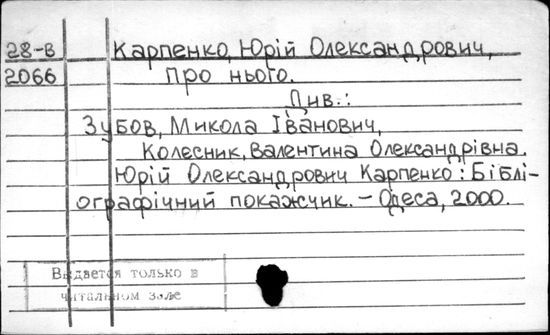 28-В Карпенко, Юрій Олександрович,
2066 про нього.
Див.:
Зубов, Микола Іванович,
Колесник, Валентина Олександрівна.
Юрій Олександрович Карпенко : Біблі-
ографічний покажчик. – Одеса, 2000.
Выдается только в
читальном зале